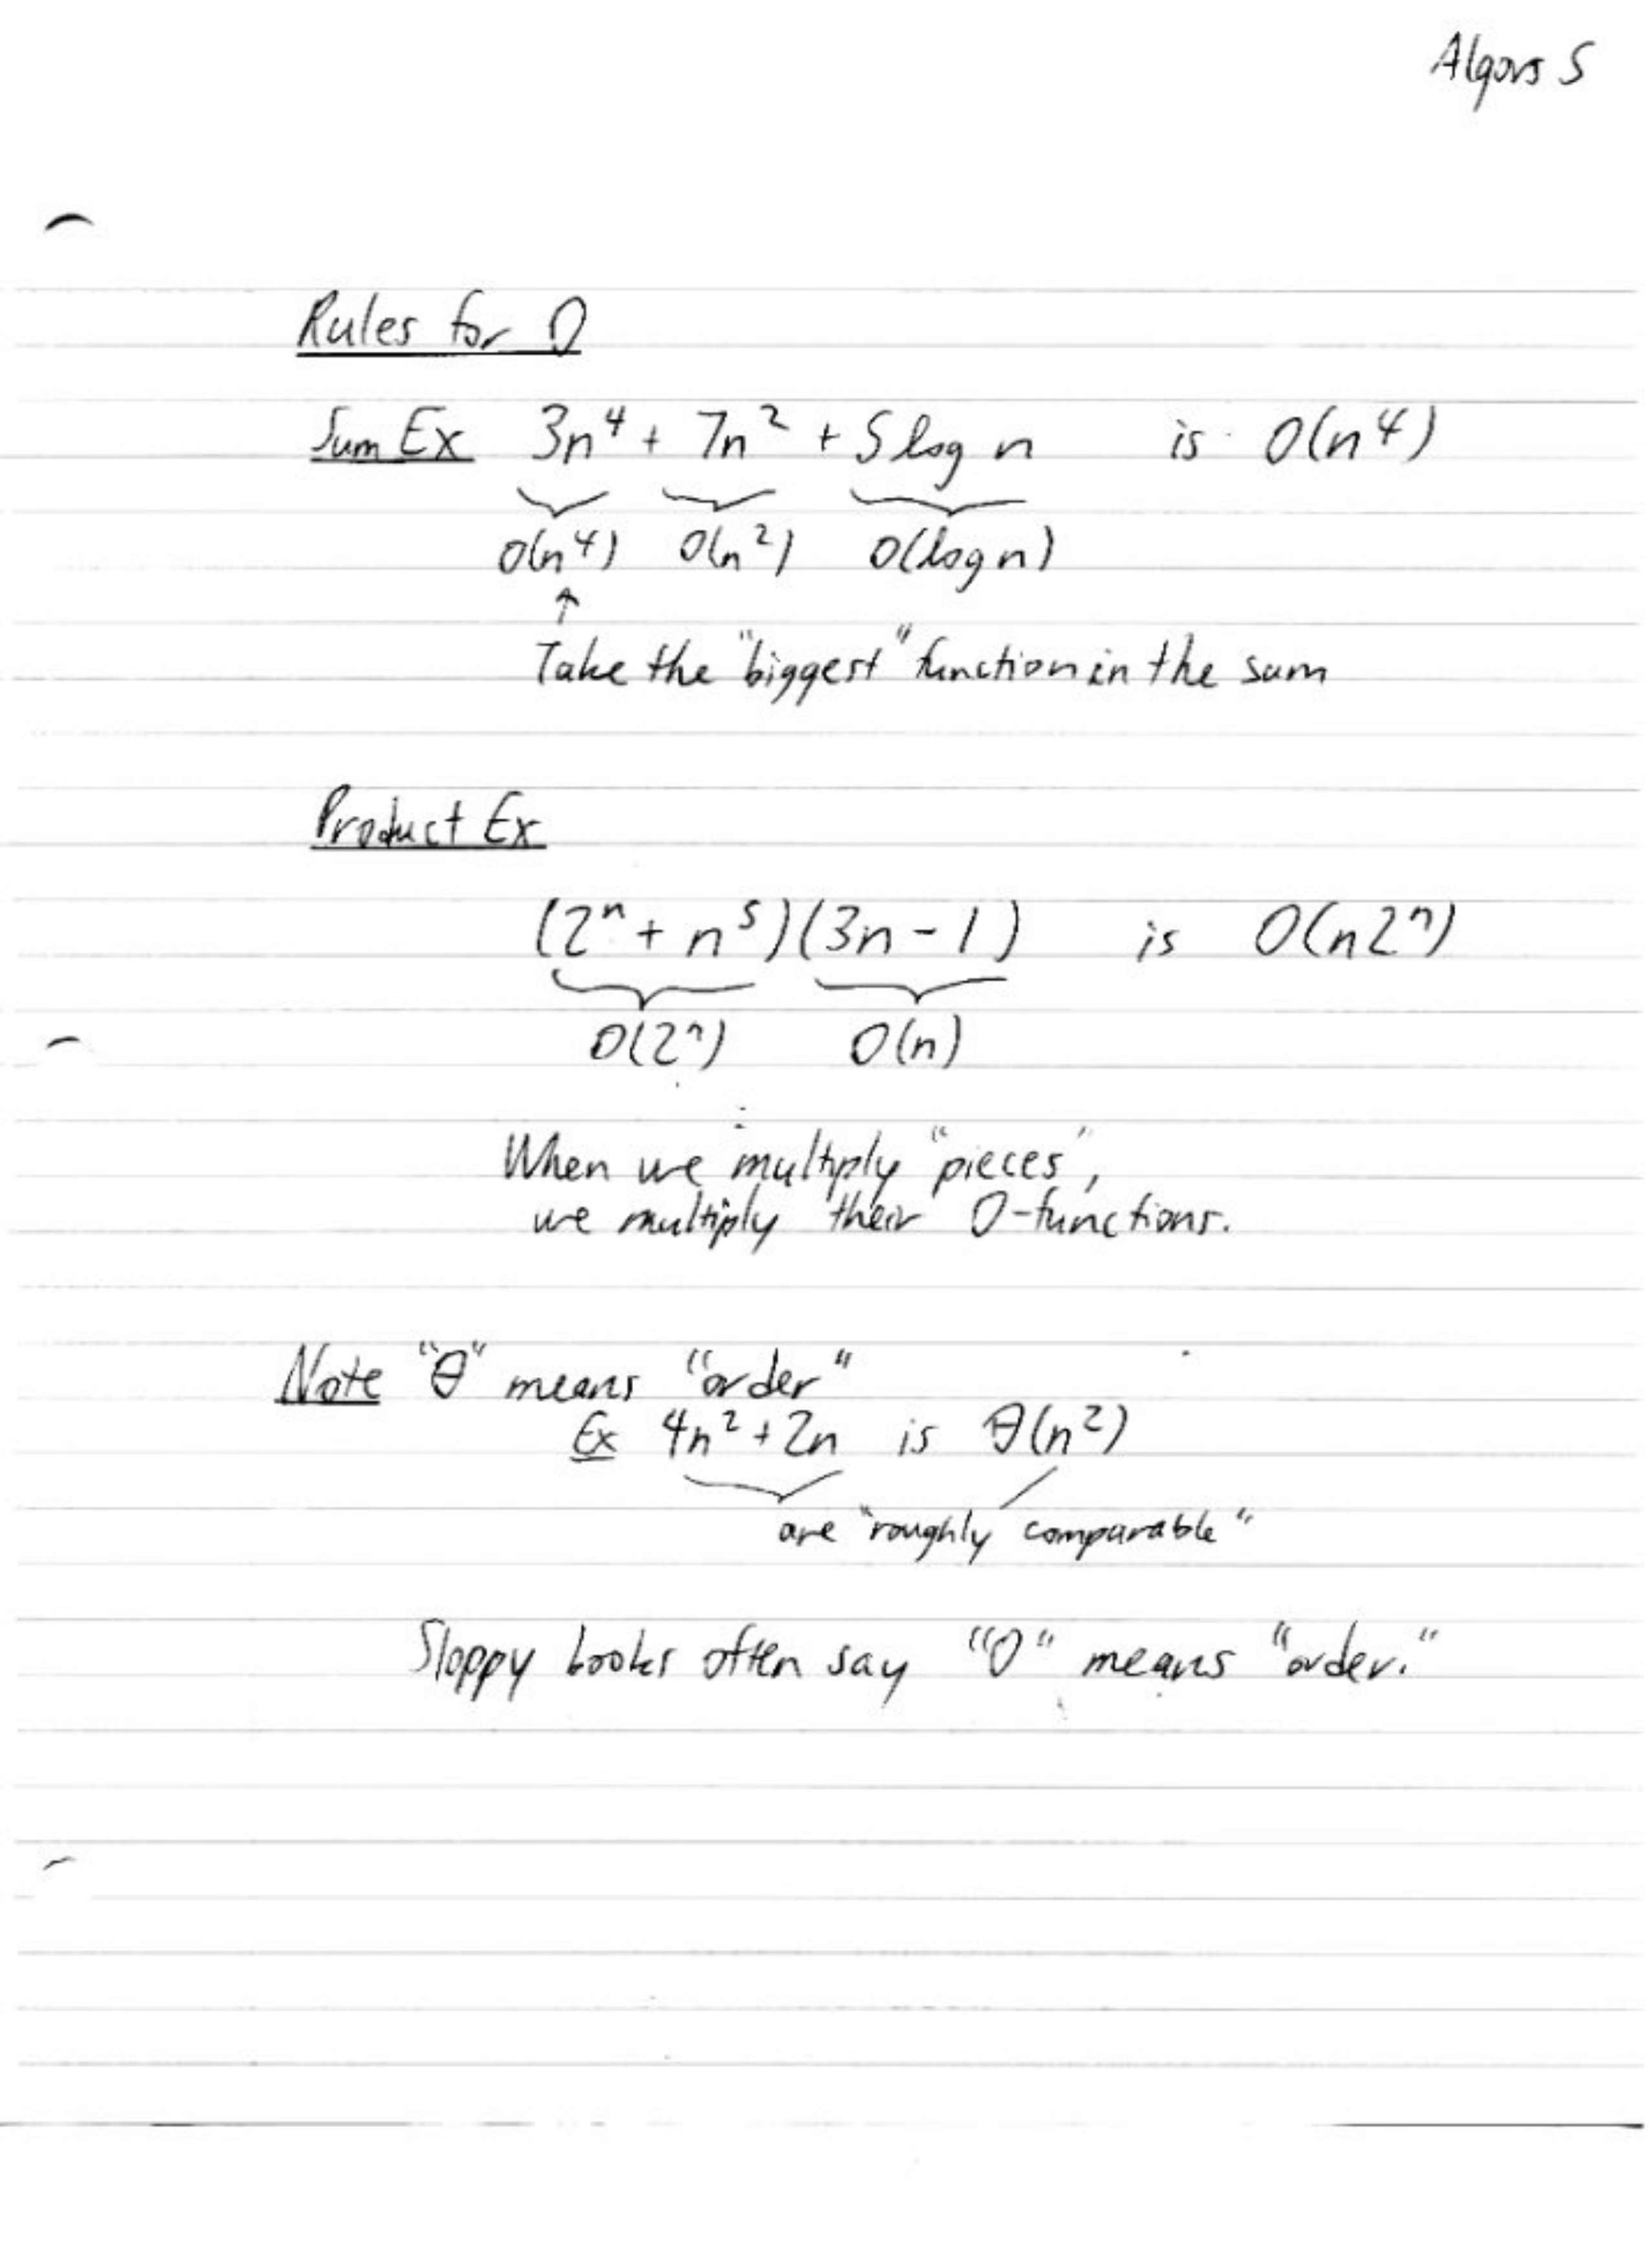 Algors 5
Rules for O
Sum Ex 3n⁴ + 7n² + 5 log n is O(n⁴)
O(n⁴) O(n²) O(log n)
↑
Take the "biggest" function in the sum
Product Ex
(2ⁿ + n⁵)(3n - 1) is O(n2ⁿ)
O(2ⁿ) O(n)
When we multiply "pieces",
we multiply their O-functions.
Note "θ" means "order"
Ex 4n² + 2n is θ(n²)
are "roughly comparable"
Sloppy books often say "O" means "order."